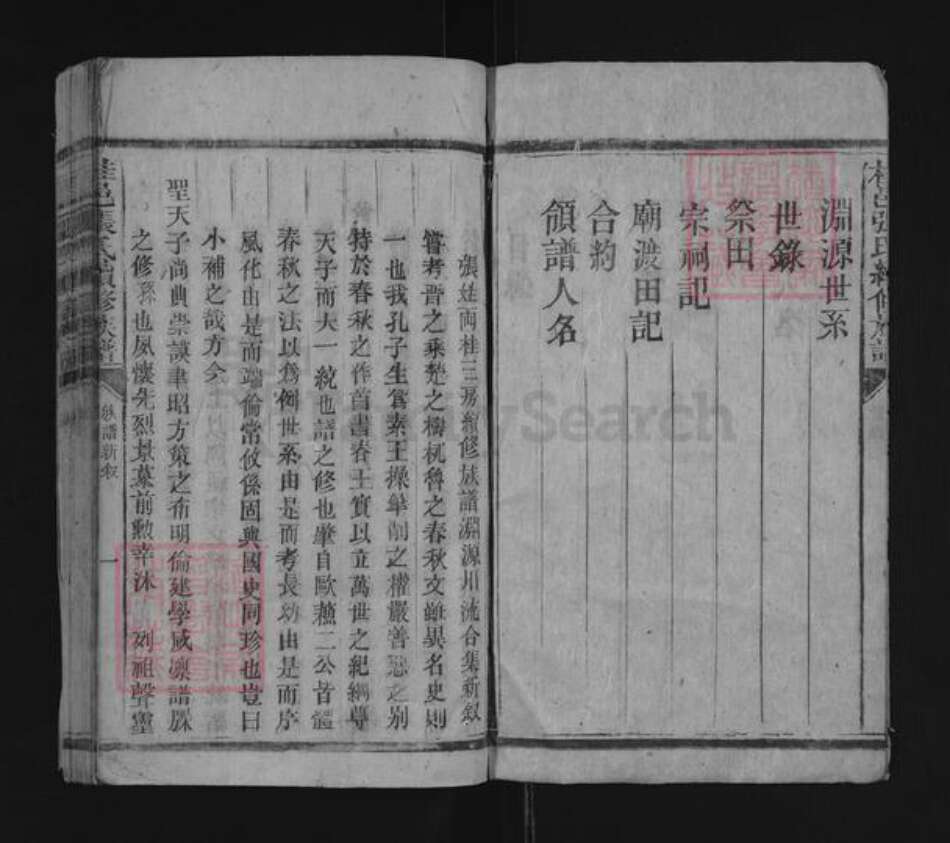 桂邑張氏續修族譜
淵源世系
世錄
祭田
宗祠記
廟渡田記
合約
領譜人名
張姓両桂三房續修族譜淵源川流合集新叙
嘗考晋之乘楚之檮杌魯之春秋文雖異名史則
一也我孔子生為素王操筆削之權嚴善惡之别
特於春秋之作首書春王實以立萬世之紀綱尊
天子而大一統也譜之修也肇自歐蘇二公昔體
春秋之法以為例世系由是而考長幼由是而序
風化由是而端倫常攸係固與國史同珍也豈曰
小補之哉方今
聖天子尚典崇謨聿昭方策之布明倫建學咸凛譜牒
之修孫也夙懷先烈景慕前勲幸沐 列祖聲靈
桂邑張氏續修族譜
族譜新叙
一
FamilySearch